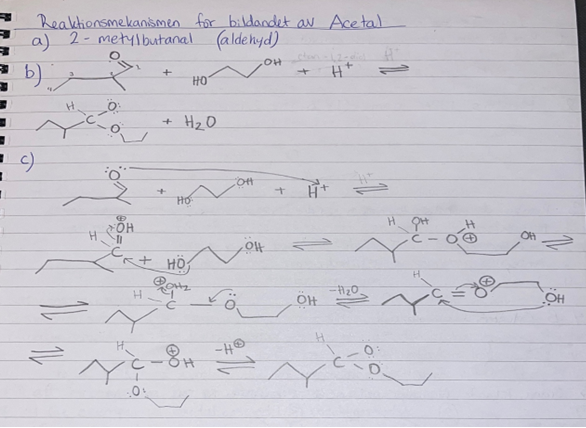 Reaktionsmekanismen för bildandet av Acetal
a) 2-metylbutanal (aldehyd)
b) O 1 2 3 4 + HO OH + H+ ⇌
H C O O + H2O
c)
O + HO OH + H+ ⇌
H ⊕ OH C + HO OH ⇌ H OH C - O H ⊕ OH ⇌
⇌ H ⊕ OH2 C O OH -H2O ⇌ H C = O ⊕ OH
⇌ H C - OH ⊕ O -H⊕ ⇌ H C O O